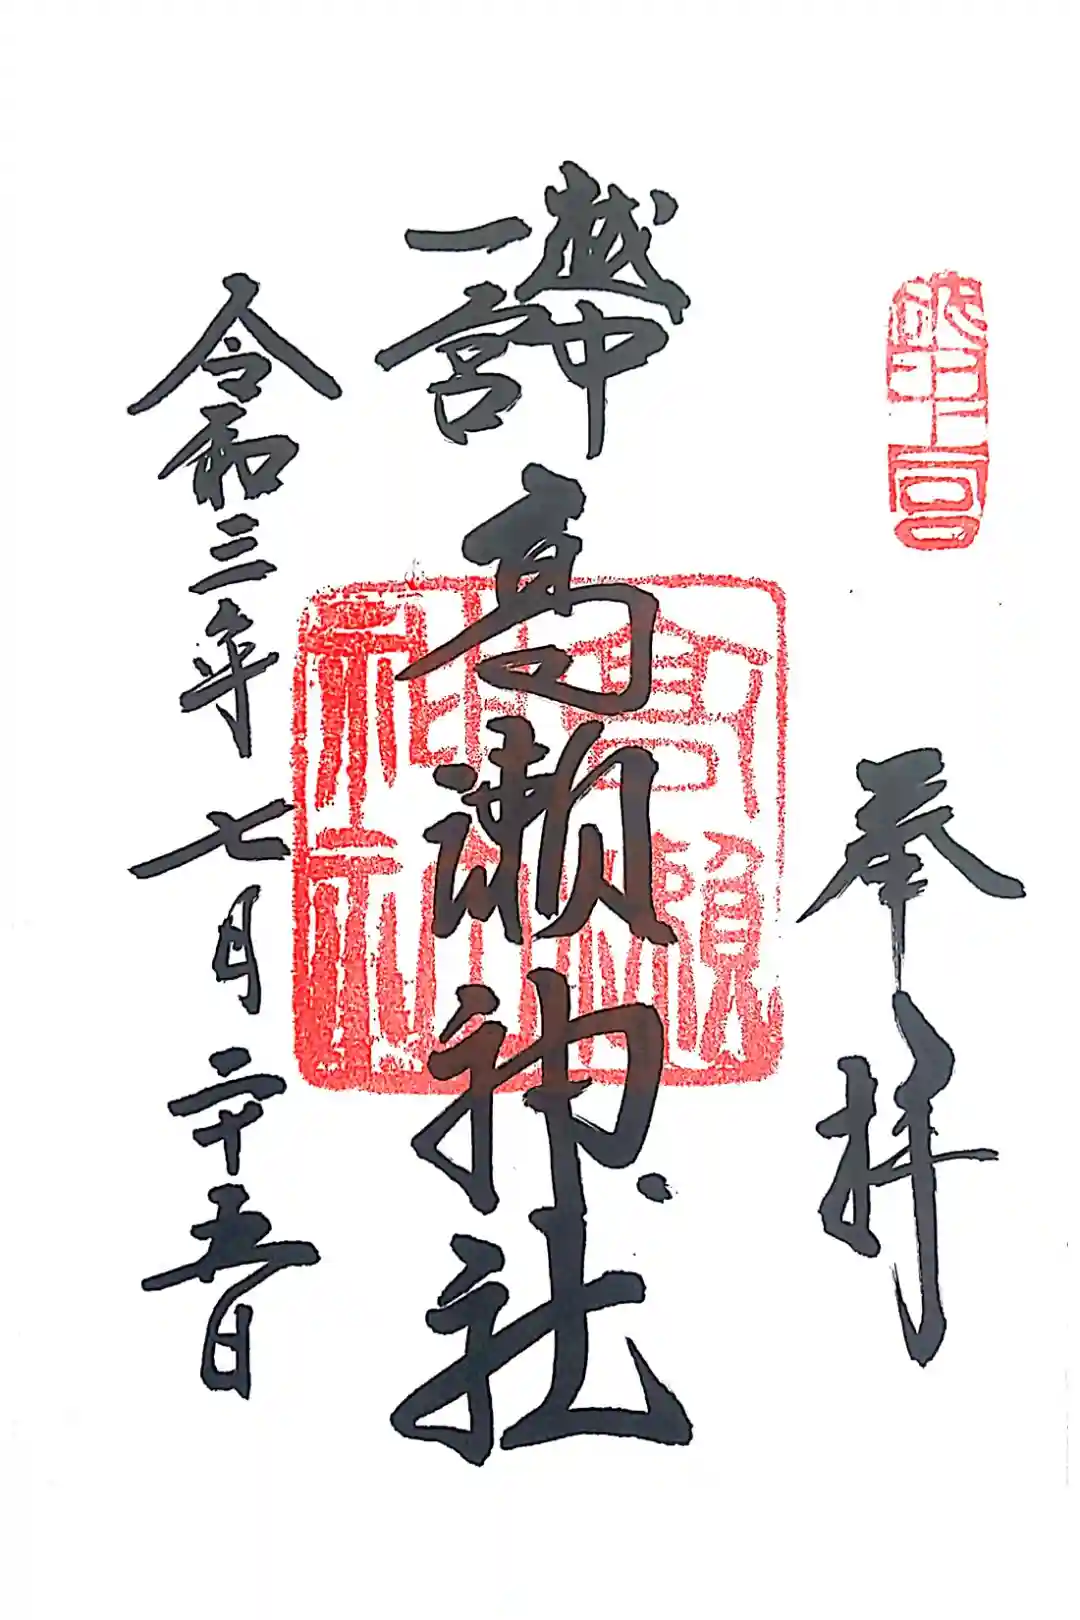 奉拝
越中
一宮
高瀬神社
令和三年七月二十五日
高瀬
神社